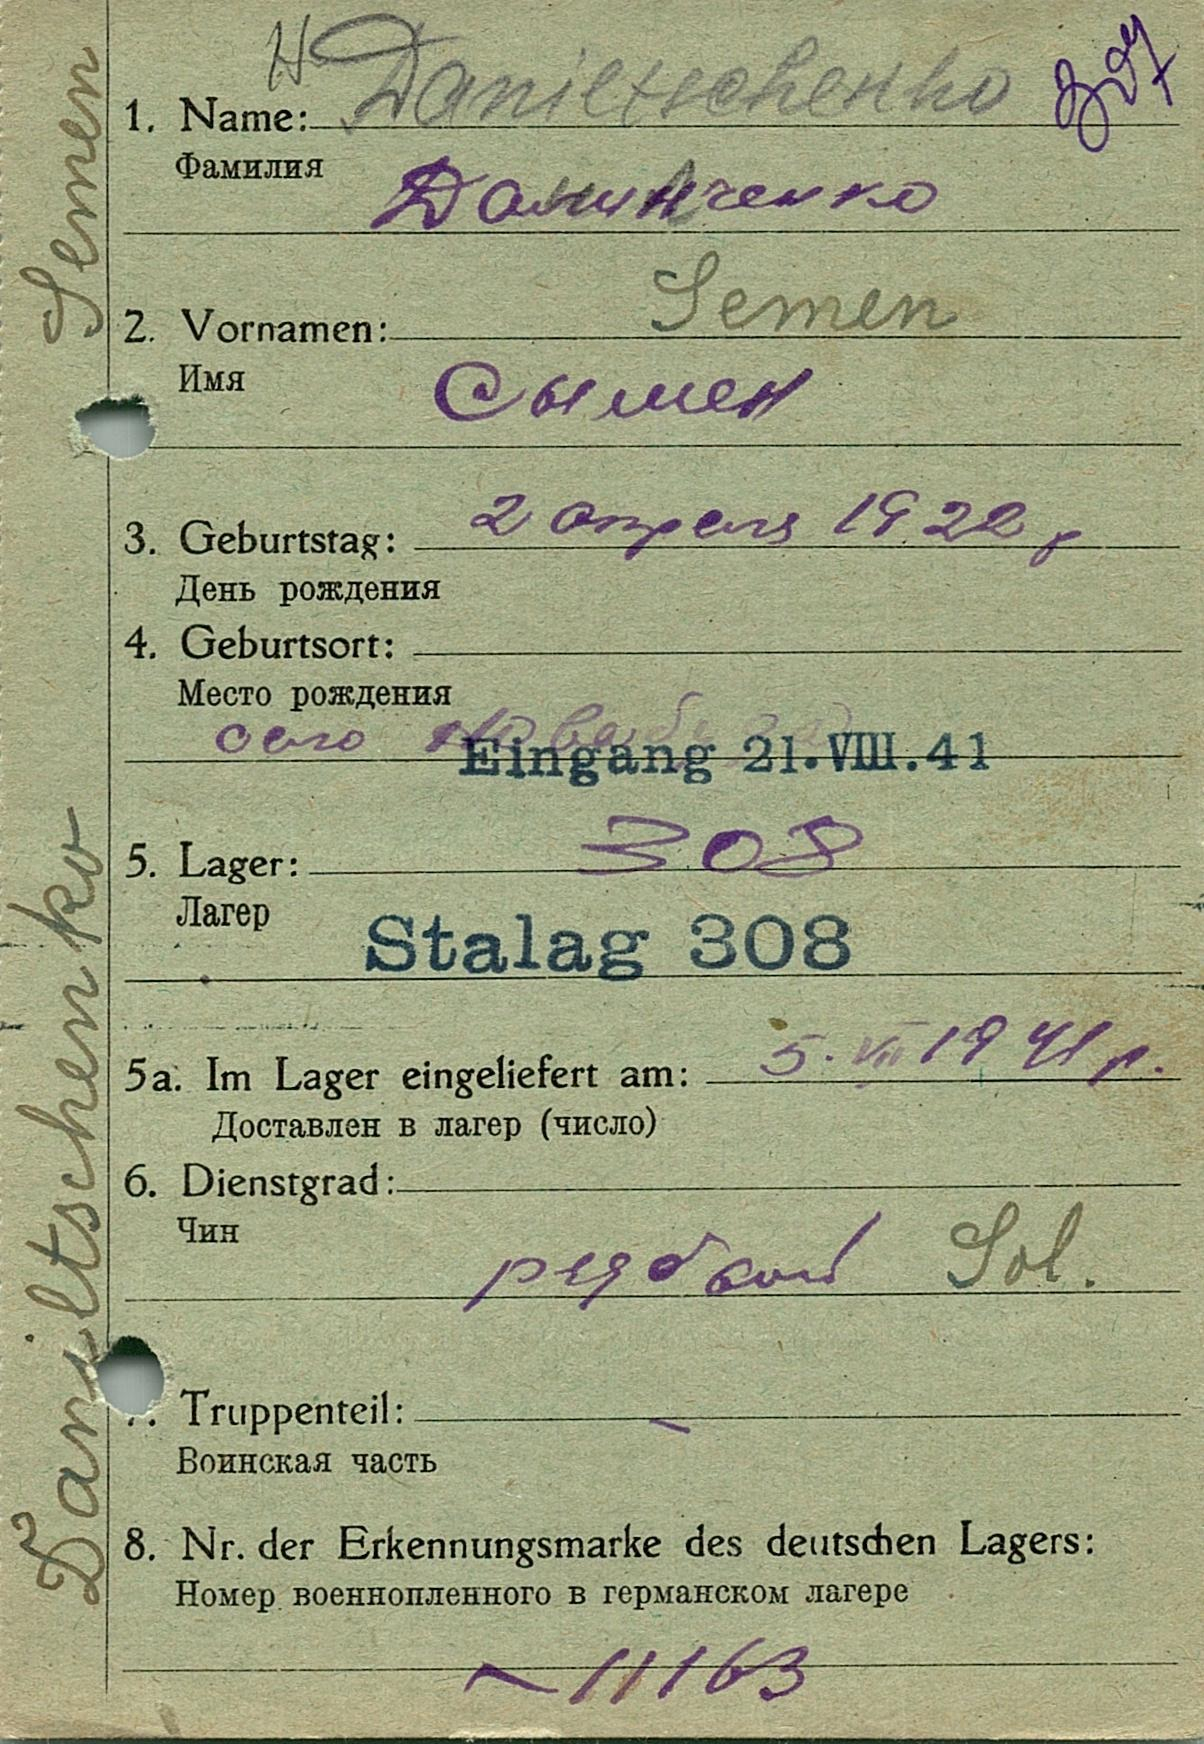 Daniltschenko Semen
1. Name: Daniltschenko
Фамилия
2. Vornamen: Semen
Имя
Сымен
3. Geburtstag: 2 апреля 1922 г
День рождения
4. Geburtsort:
Место рождения
село
Eingang 21.VIII.41
5. Lager: 308
Лагер
Stalag 308
5a. Im Lager eingeliefert am: 5. VIII 1941 г.
Доставлен в лагер (число)
6. Dienstgrad:
Чин
рядовой Sol.
Truppenteil: –
Воинская часть
8. Nr. der Erkennungsmarke des deutschen Lagers:
Номер военнопленного в германском лагере
11163